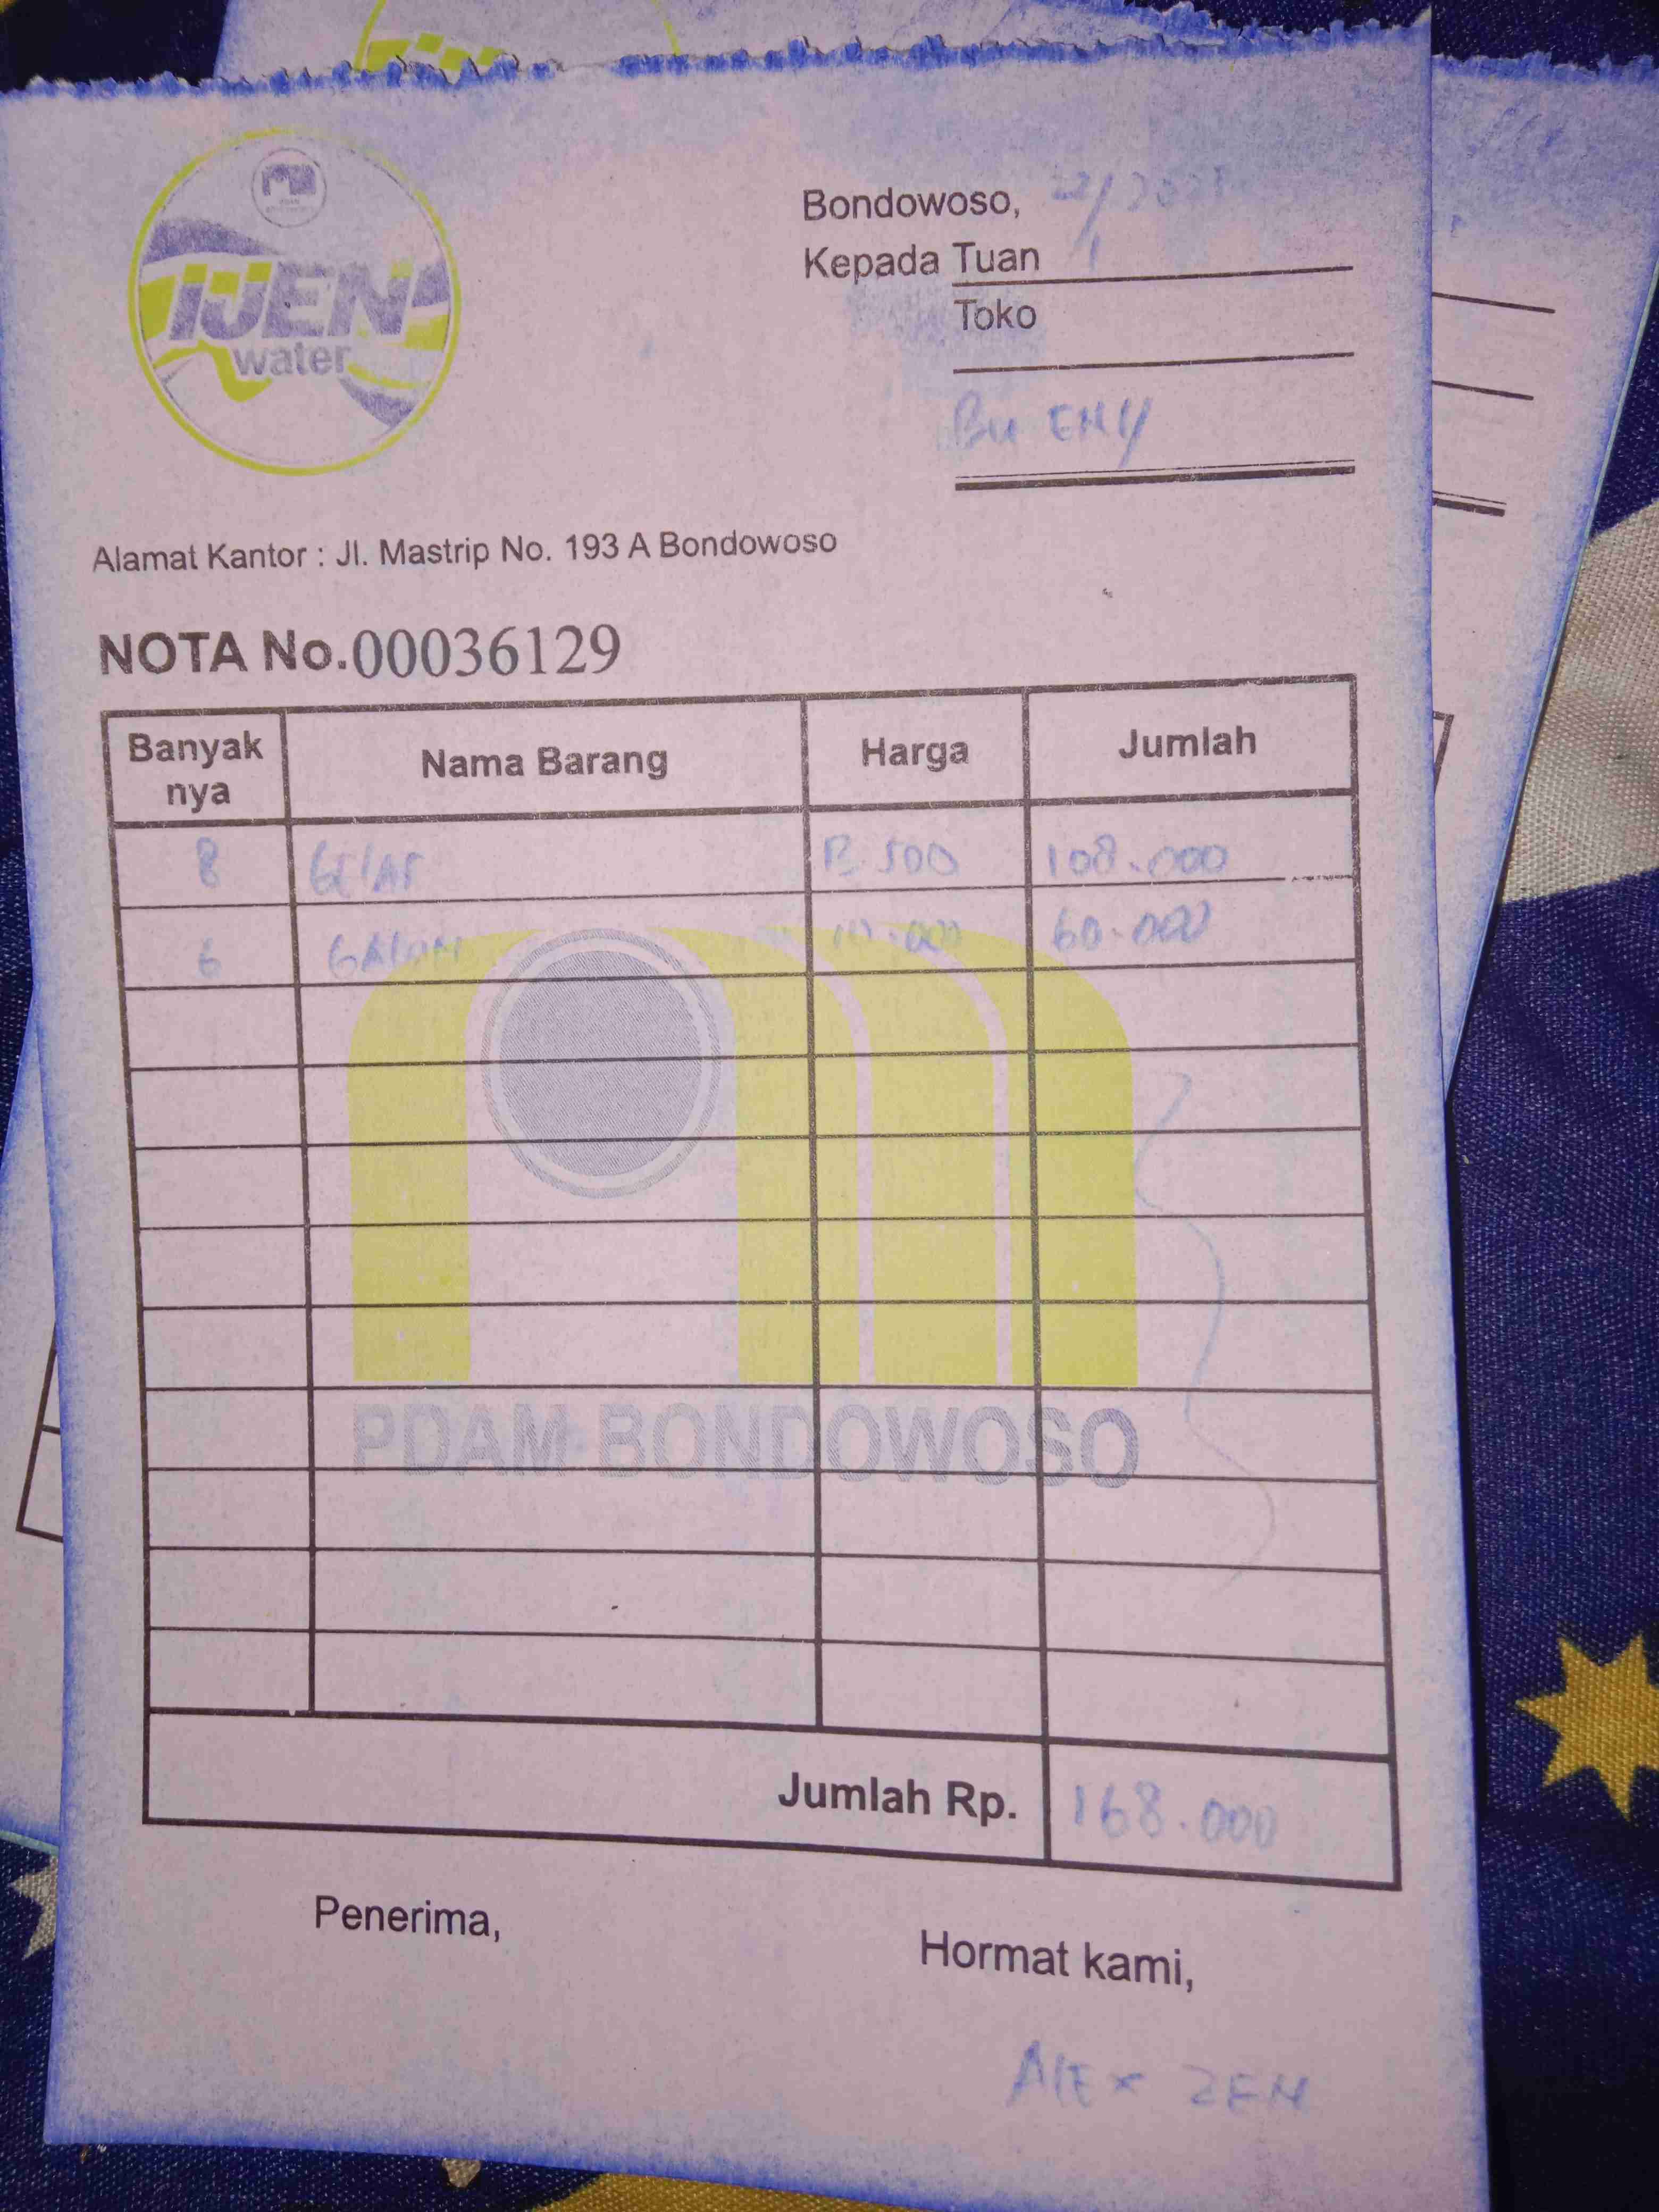 IJEN
water
Bondowoso,
Kepada Tuan
Toko
Bu ENY
Alamat Kantor : Jl. Mastrip No. 193 A Bondowoso
NOTA No. 00036129
Banyak nya Nama Barang Harga Jumlah
8 GElAS 13.500 108.000
6 GAlON 10.000 60.000
PDAM BONDOWOSO
Jumlah Rp. 168.000
Penerima,
Hormat kami,
AlEX ZEN